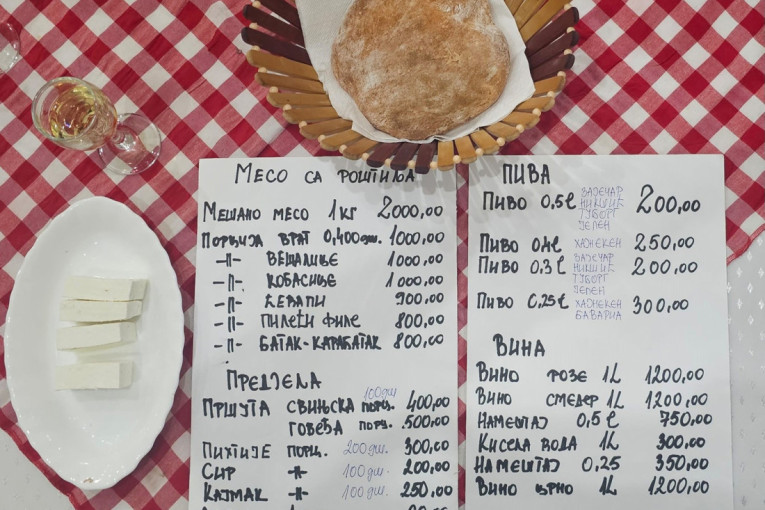 МЕСО СА РОШТИЉА
МЕШАНО МЕСО 1КГ 2000,00
ПОРЦИЈА ВРАТ 0,400дш. 1000,00
-||- ВЕШАЛИЦЕ 1000,00
-||- КОБАСИЦЕ 1000,00
-||- ЋЕВАПИ 900,00
-||- ПИЛЕЋИ ФИЛЕ 800,00
-||- БАТАК-КАРАБАТАК 800,00
ПРЕДЈЕЛА
100дш
ПРШУТА СВИЊСКА ПОРЦ. 400,00
ГОВЕЂА ПОРЦ. 500,00
ПИХТИЈЕ ПОРЦ. 200дш. 300,00
СИР -||- 100дш. 200,00
КАЈМАК -||- 100дш. 250,00
ПИВА
ПИВО 0,5l ЗАЈЕЧАР 200,00
НИКШИЋ
ТУБОРГ
ЈЕЛЕН
ПИВО 0,4l ХАЈНЕКЕН 250,00
ПИВО 0,3l ЗАЈЕЧАР 200,00
НИКШИЋ
ТУБОРГ
ЈЕЛЕН
ПИВО 0,25l ХАЈНЕКЕН 300,00
БАВАРИА
ВИНА
ВИНО РОЗЕ 1L 1200,00
ВИНО СМЕДЕР 1L 1200,00
НАМЕШТАЈ 0,5l 750,00
КИСЕЛА ВОДА 1L 300,00
НАМЕШТАЈ 0,25 350,00
ВИНО ЦРНО 1L 1200,00